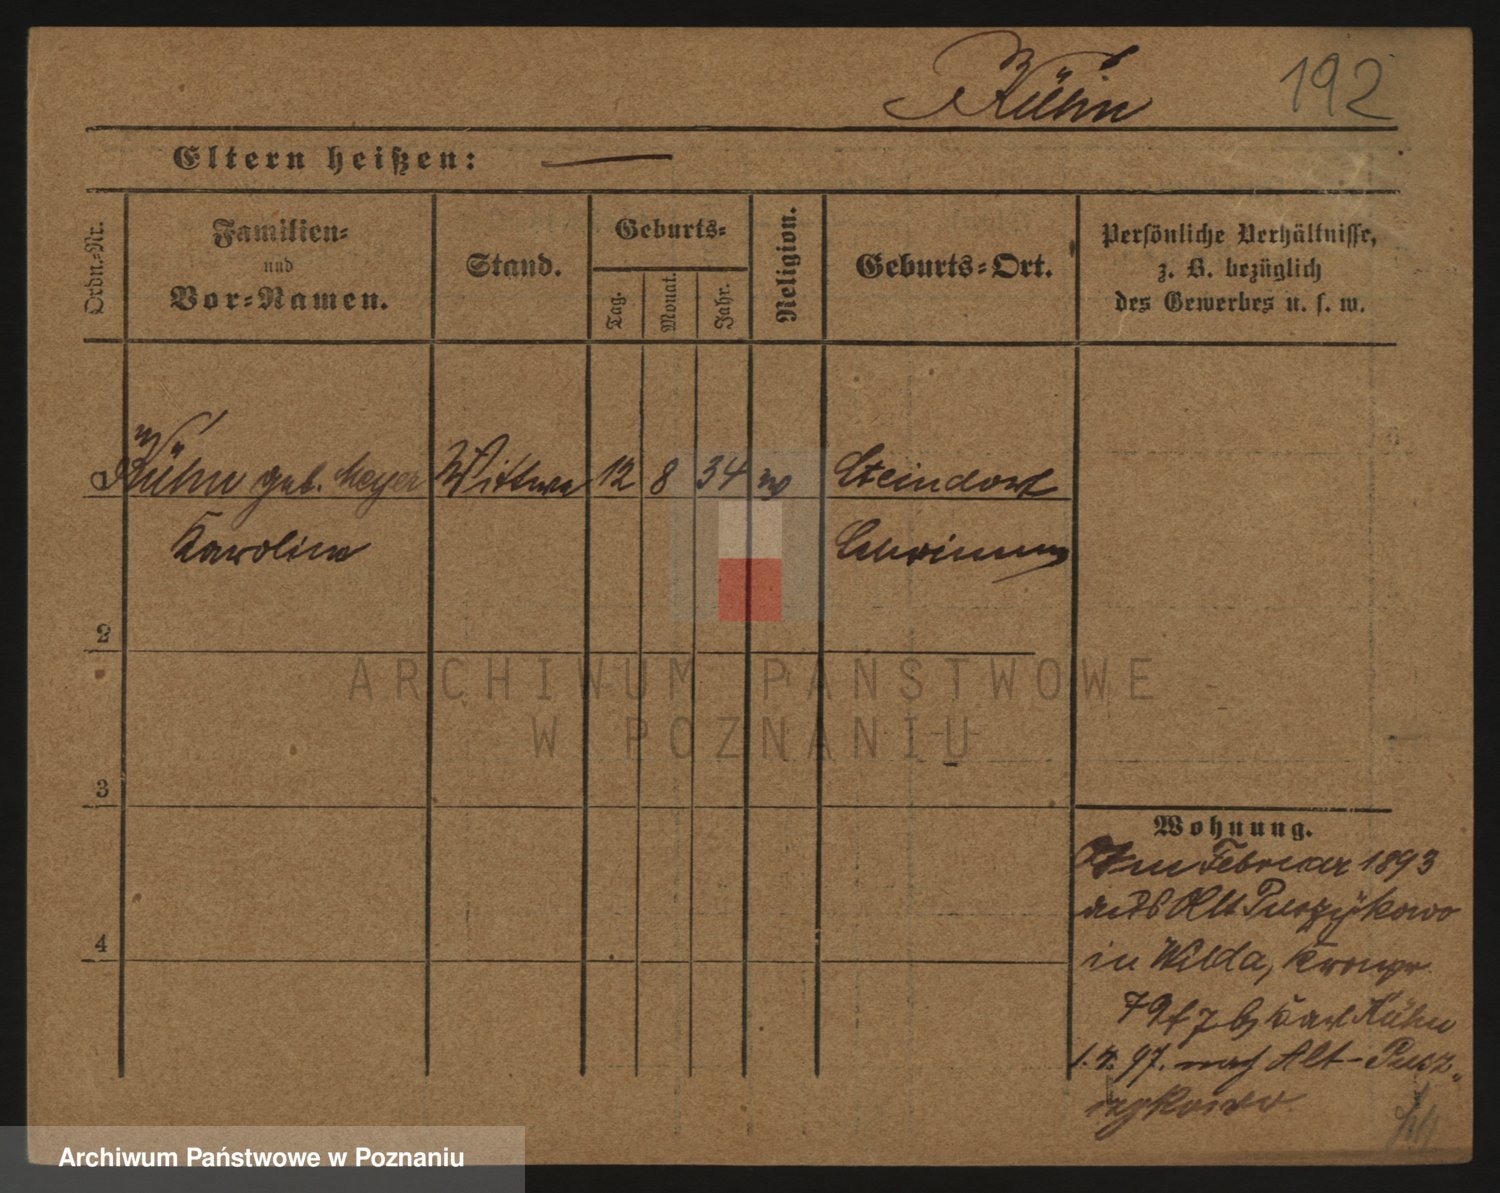 Kühn 192
Eltern heißen: —
Ordn.-Nr.
Familien-
und
Vor-Namen.
Stand.
Geburts-
Tag.
Monat.
Jahr.
Religion.
Geburts-Ort.
Persönliche Verhältnisse,
z. B. bezüglich
des Gewerbes u. s. w.
Kühn geb. Meyer Wittwe 12 8 34 Steindorf
Karoline
2
3
4
Wohnung.
Im Februar 1893
aus Alt Puszzykowo
in Wilda,
Karl Kühn
1.4.97. nach Alt-Pusz-
zykowo
ARCHIWUM PAŃSTWOWE
W POZNANIU
Archiwum Państwowe w Poznaniu